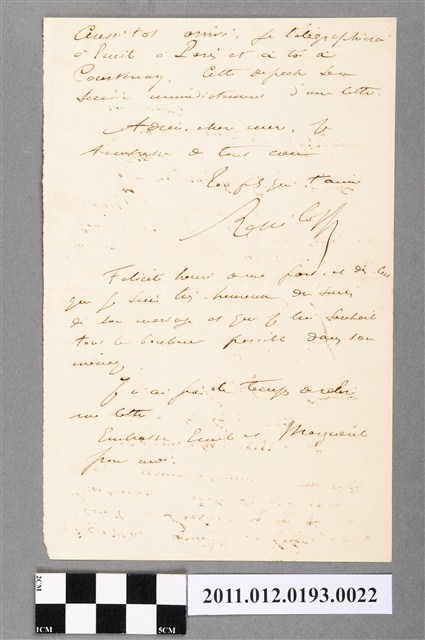 Aussitot arrivé, je telegraphierai
à Emile à Paris et à toi à
Courtenay. Cette depeche sera
suivie immediatement d'une lettre.
Adieu, cher mere, je
t'embrasse de tous coeur
Ton fils qui t'aime
Felicite henri de ma part, et dis lui
que je suis très heureux du
de son mariage et que je lui souhaite
tous le bonheur possible dans son
ménage
Je n'ai pas le temps de relire
ma lettre.
Embrasse Emile et Marguerite
pour moi.
2CM
1CM 5CM
2011.012.0193.0022